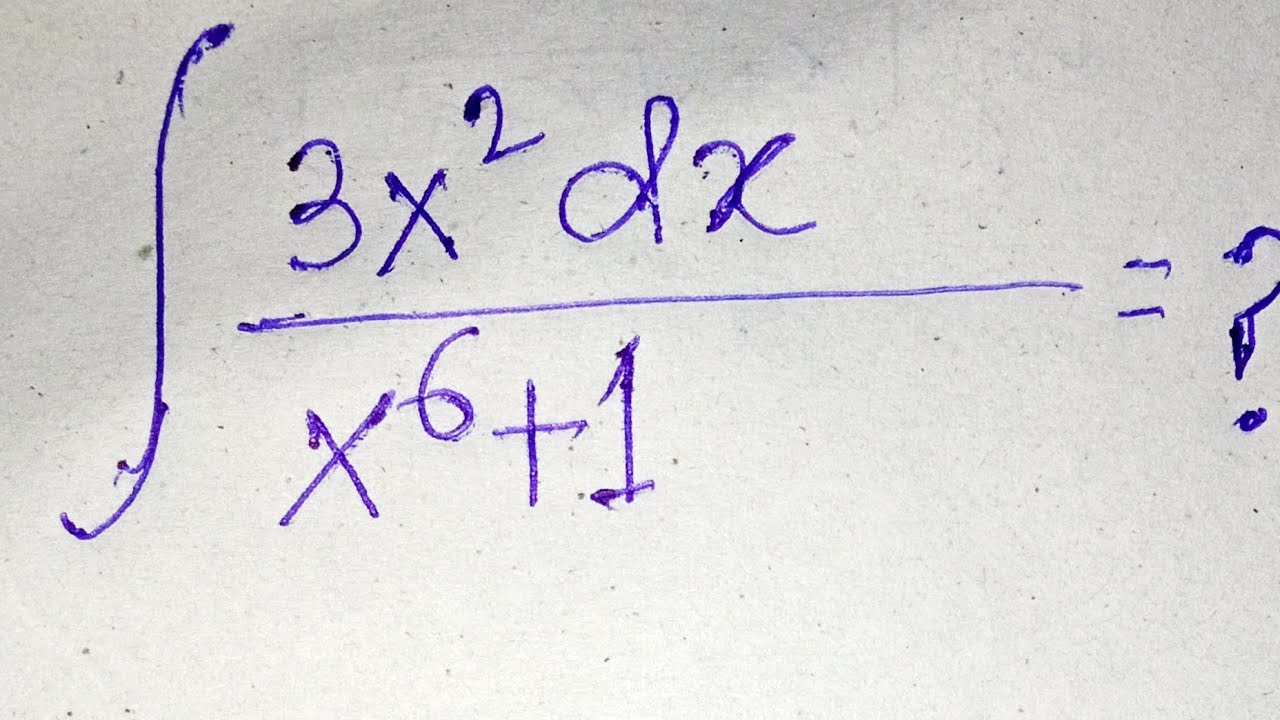 ∫ 3x² dx
x⁶+1 = ?